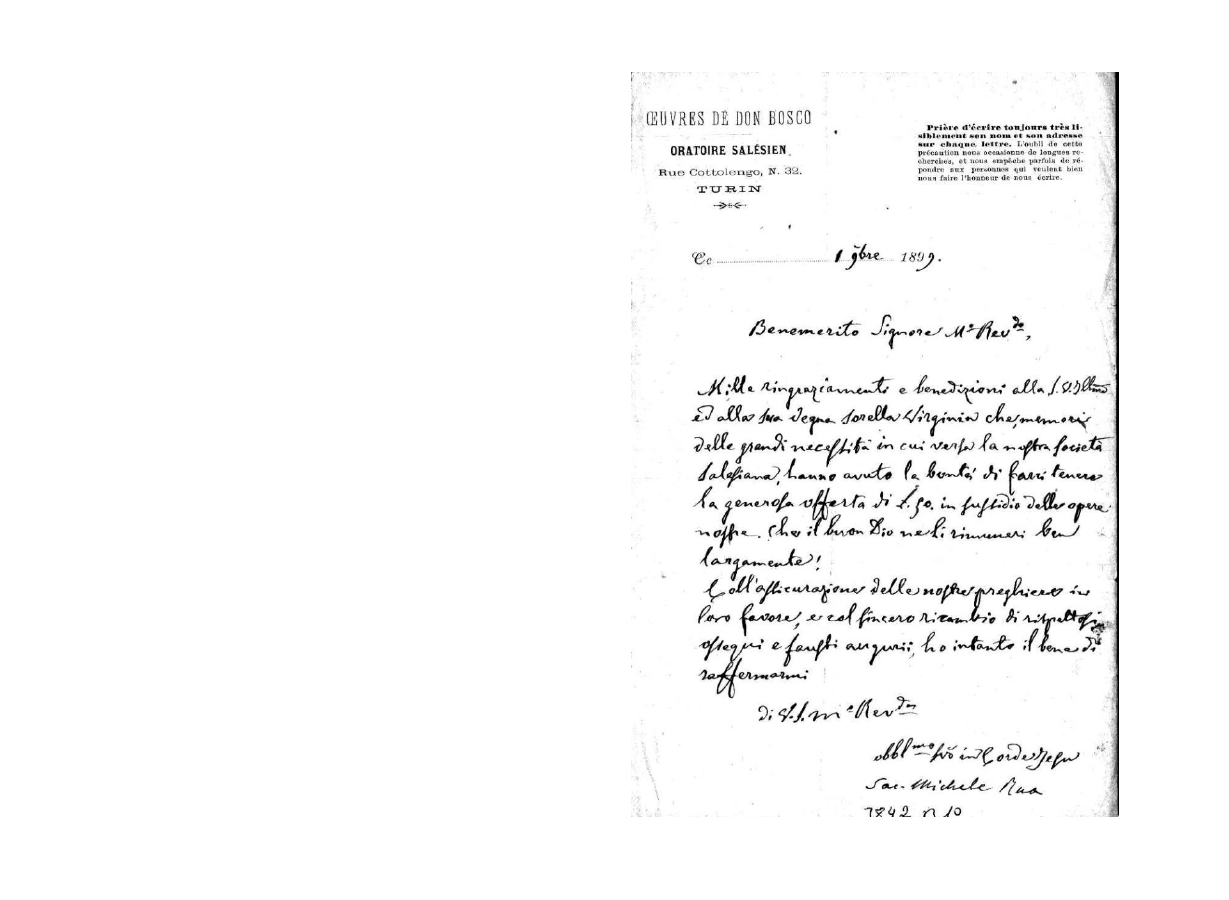 ŒUVRES DE DON BOSCO
ORATOIRE SALÉSIEN
Rue Cottolengo, N. 32.
TURIN
Prière d'écrire toujours très li-
siblement son nom et son adresse
sur chaque lettre. L'oubli de cette
précaution nous occasionne de longues re-
cherches, et nous empêche parfois de ré-
pondre aux personnes qui veulent bien
nous faire l'honneur de nous écrire.
Le 1 9bre 1899.
Benemerito Signore M.o Rev.do,
Mille ringraziamenti e benedizioni alla S.V.Ill.ma
ed alla sua degna sorella Virginia che, memori
delle grandi necessità in cui versa la nostra società
Salesiana, hanno avuto la bontà di farci tenere
la generosa offerta di L. 50. in sussidio delle opere
nostre. Che il buon Dio ne li rimuneri ben
largamente!
Coll'assicurazione delle nostre preghiere in
loro favore, e col sincero ricambio di rispettosi
ossequi e fausti augurii, ho intanto il bene di
raffermarmi
di V.S. M.o Rev.da
obbl.mo in Corde Jesu
Sac. Michele Rua
7842 n 10